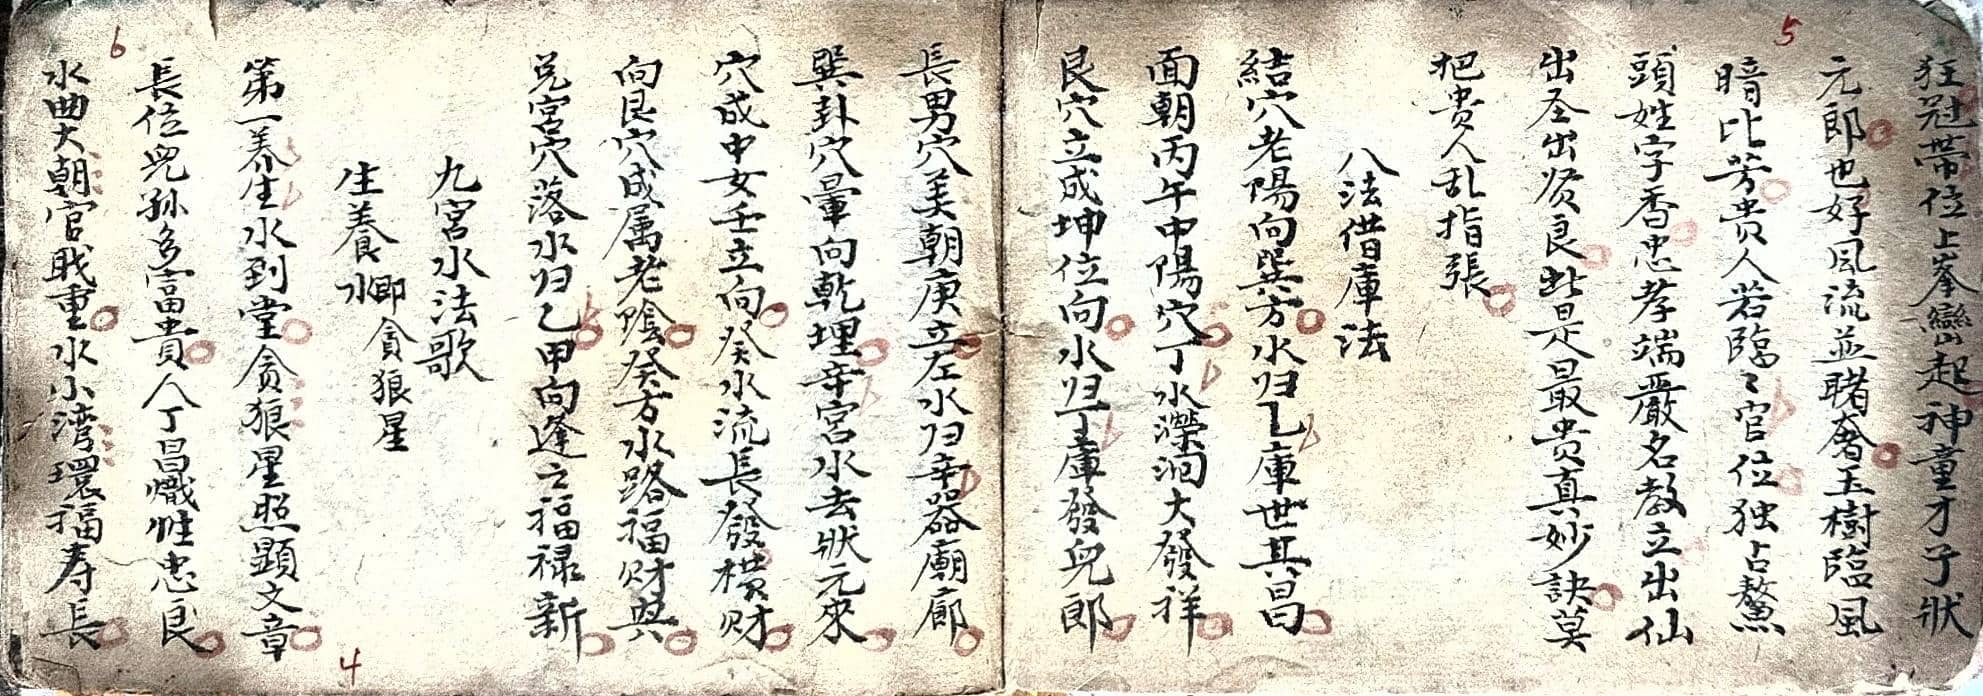 5
狂冠帶位上峯巒起神童才子狀
元郎也好風流並賭奢玉樹臨風
暗比芳貴人若臨〻官位独占鰲
頭姓字香忠孝端嚴名教立出仙
出圣出贤良此是最贵真妙訣莫
把贵人乱指張
八法借庫法
結穴老陽向巽方水归乙庫世其昌
面朝丙午中陽穴丁水濼洄大發祥
艮穴立成坤位向水归丁庫發兒郎
長男穴美朝庚立左水归辛器廟廊
巽卦穴暈向乾埋辛宮水去狀元來
穴成中女壬立向癸水流長發橫財
向艮穴成属老陰癸方水路福财與
兌宮穴落水归乙甲向逢之福禄新
九宮水法歌
生養水卽貪狼星
第一养生水到堂貪狼星照顯文章
長位兒孫多富貴人丁昌熾性忠良
水曲大朝官职重水小湾環福寿長
6
4